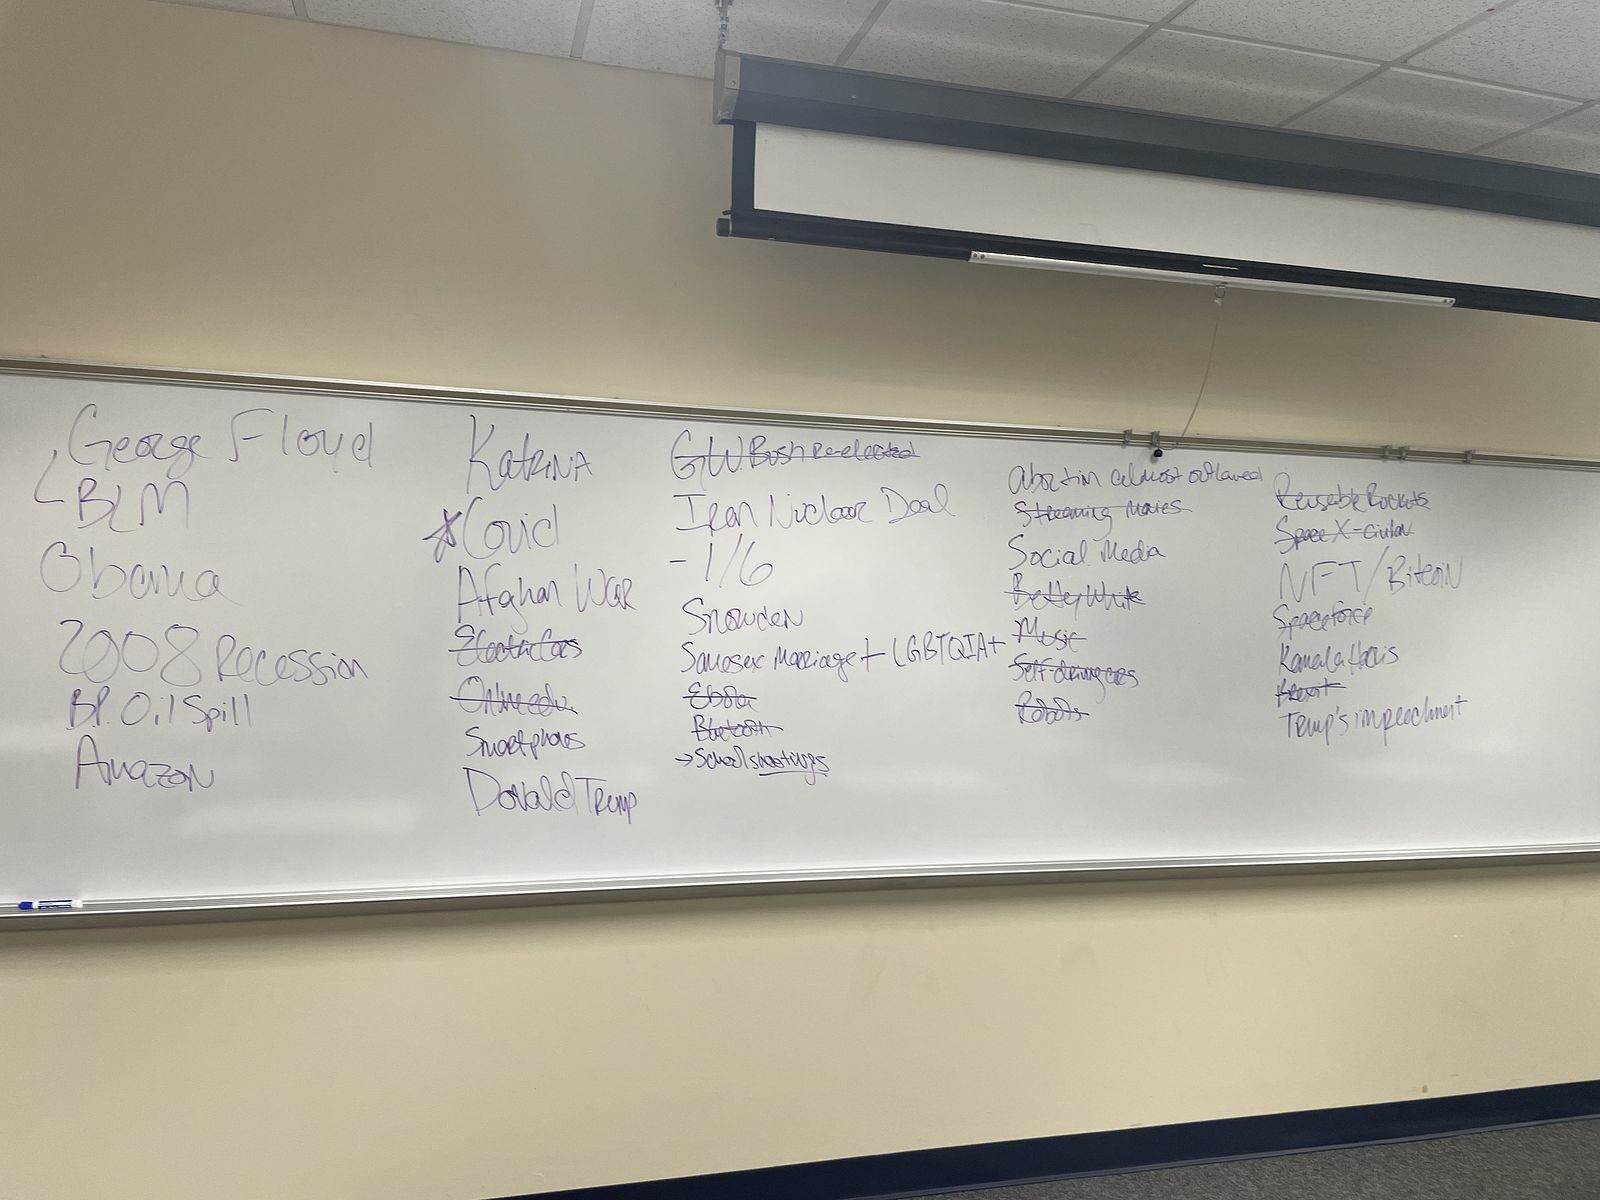 George Floyd
BLM
Obama
2008 Recession
B.P. Oil Spill
Amazon
Katrina
Covid
Afghan War
Electric Cars
Online edu.
Smartphones
Donald Trump
G.W. Bush Re-elected
Iran Nuclear Deal
- 1/6
Snowden
Samesex Marriage + LGBTQIA+
Ebola
Bluetooth
→ School shootings
Abortion almost outlawed
Streaming Movies
Social Media
Betty White
Music
Self-driving cars
Robots
Reusable Rockets
Space X - civilian
NFT/Bitcoin
Spaceforce
Kamala Harris
Brexit
Trump's impeachment